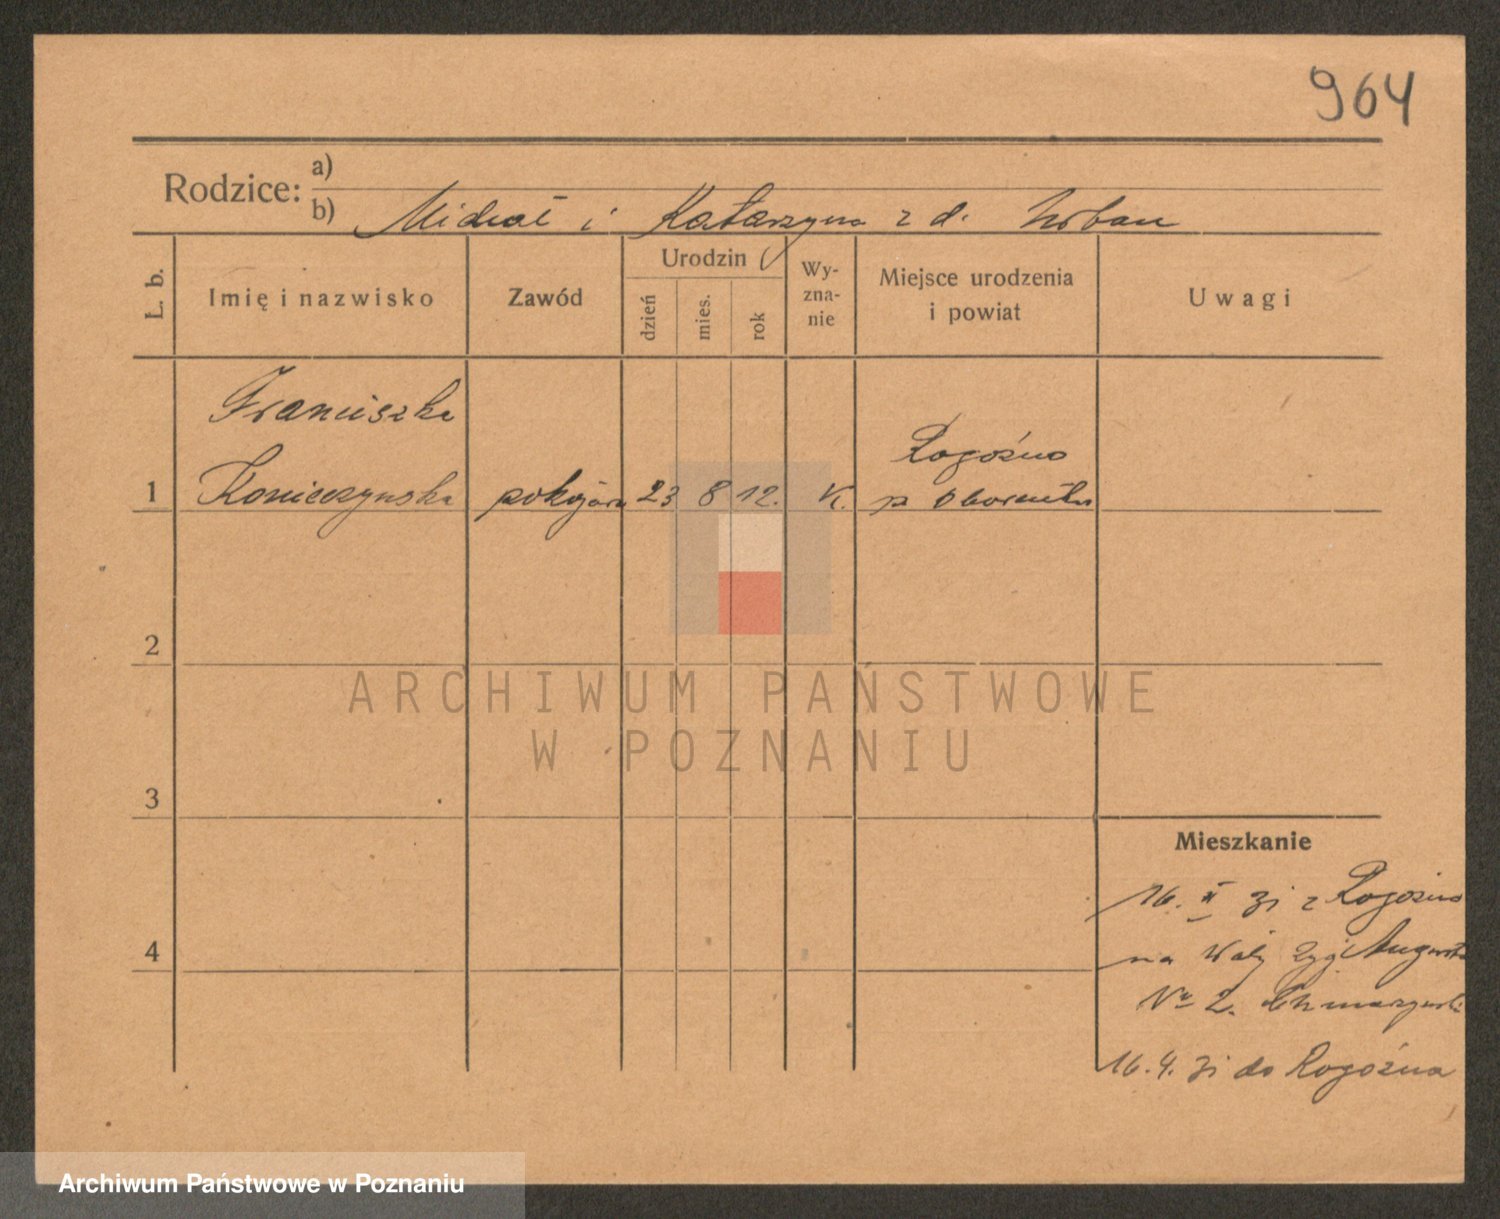 964
Rodzice: a)
b) Michał i Katarzyna z d. Urban
L. b. Imię i nazwisko Zawód Urodzin Wy-zna-nie Miejsce urodzenia i powiat Uwagi
dzień mies. rok
Franciszka
Rogoźno
1 Konieczynska pokojów 23 8 12. K. p Obornicki
2
ARCHIWUM PAŃSTWOWE
W POZNANIU
3
Mieszkanie
16. II 31 z Rogoźno
4
na Wały Zyg Augusta
No 2.
16.4. 31 do Rogoźna
Archiwum Państwowe w Poznaniu